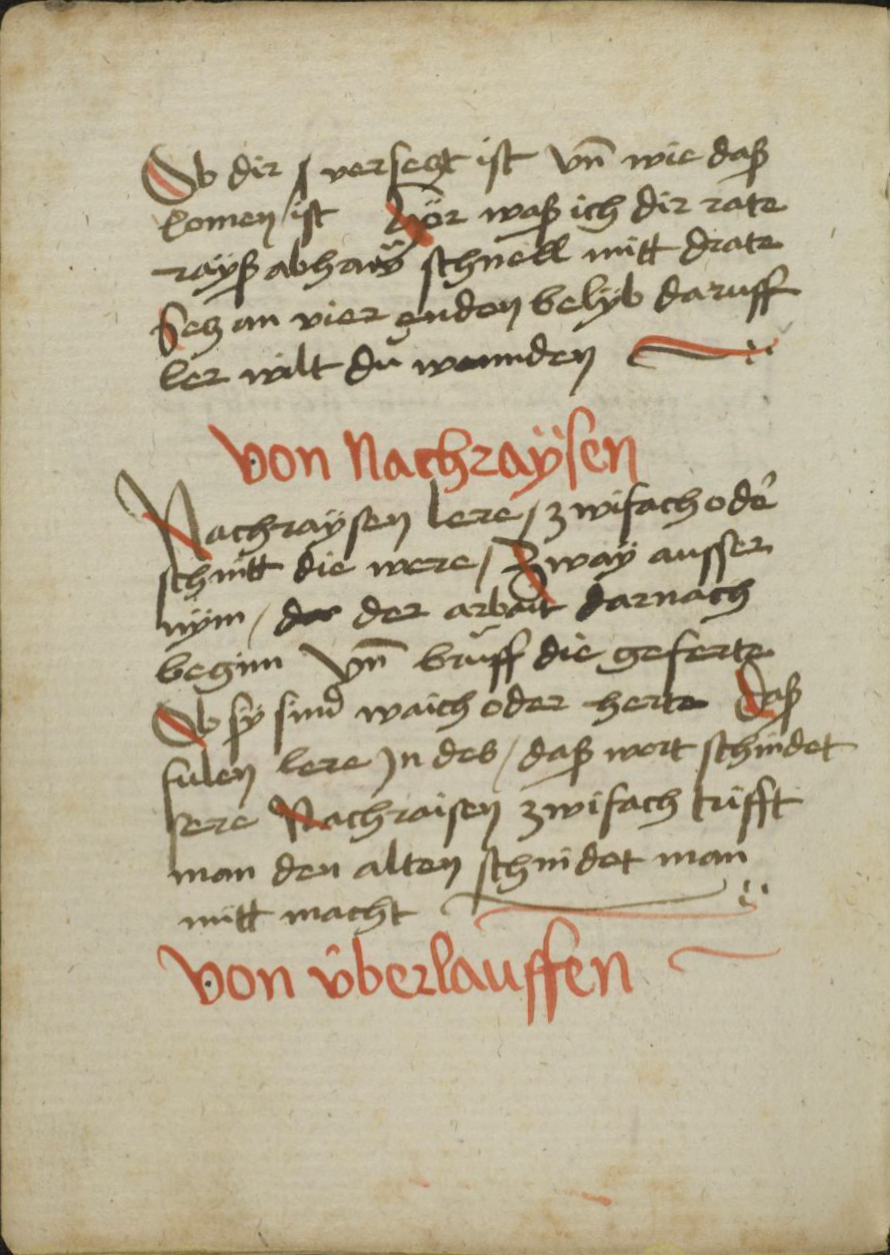 Ob dir versetzt ist vn̄ wie daß
komen ist Hör waß ich dir rate
rayß abhaw schnell mitt drate
Setz an vier enden belyb daruff
ler wilt du wennden
von Nachraÿsen
Nachraÿsen lere / zwifach ode͛
schnitt die were / Zwaÿ ausser
nÿm / der arbait darnach
beginn Vn̄ brŭff die geferte
Ob sÿ sind waich oder herte Daß
fulen lere Jn des / daß wort schnidet
sere Nachraisen zwifach trifft
man den alten schnidet man
mitt macht
von v̂berlauffen